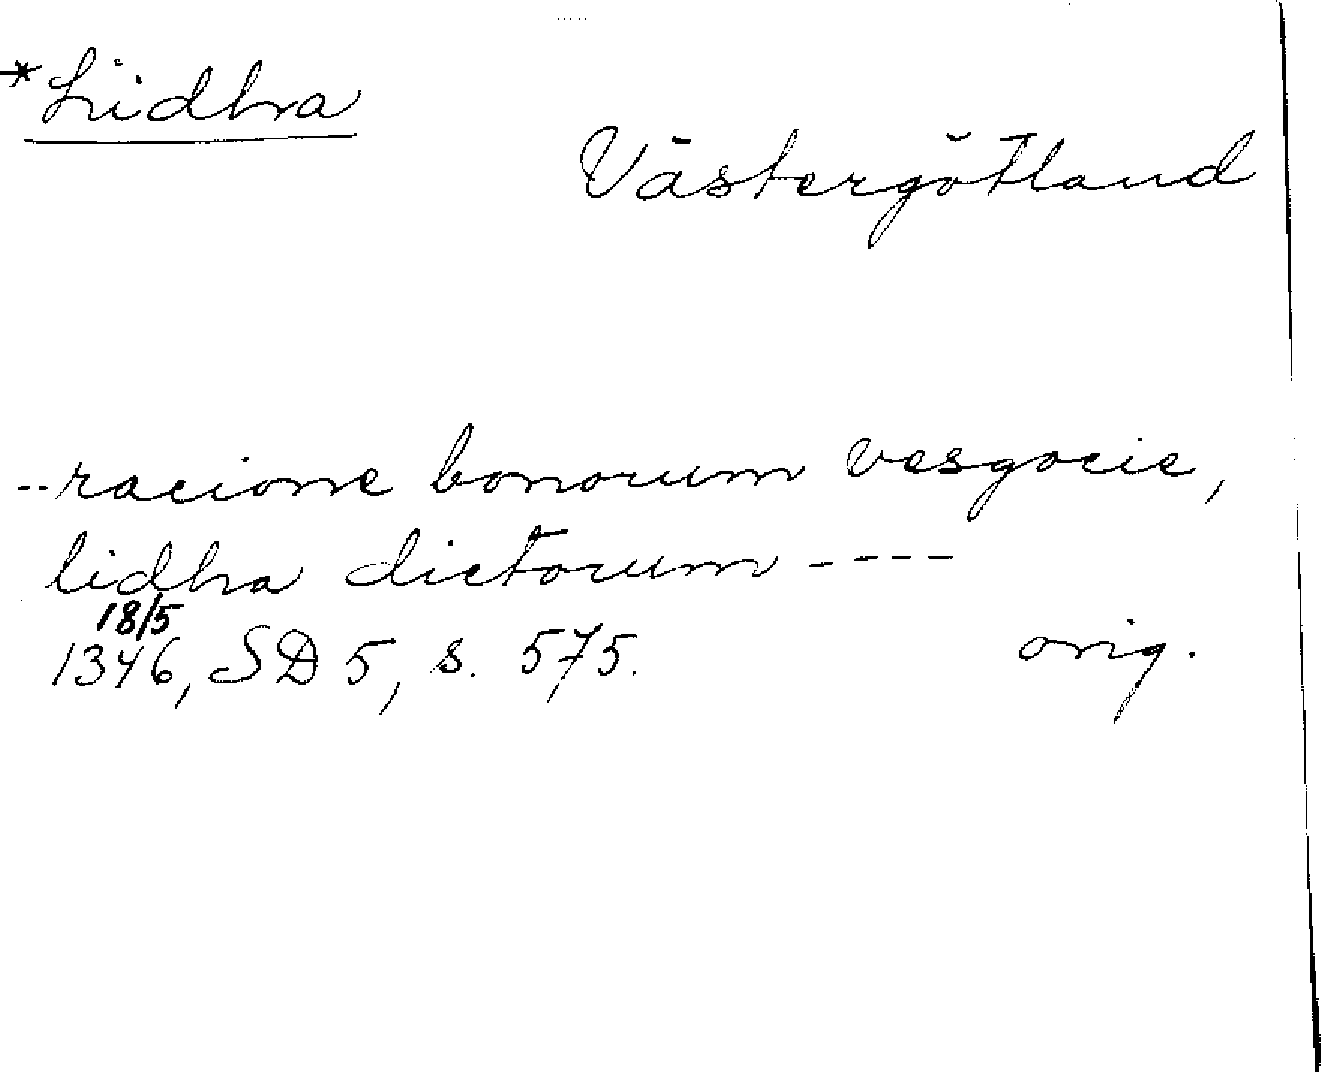 *Lidhra
Västergötland
--racione bonorum vesgocie,
lidhra dictorum ----
18/5
1346, SD 5, s. 575. orig.